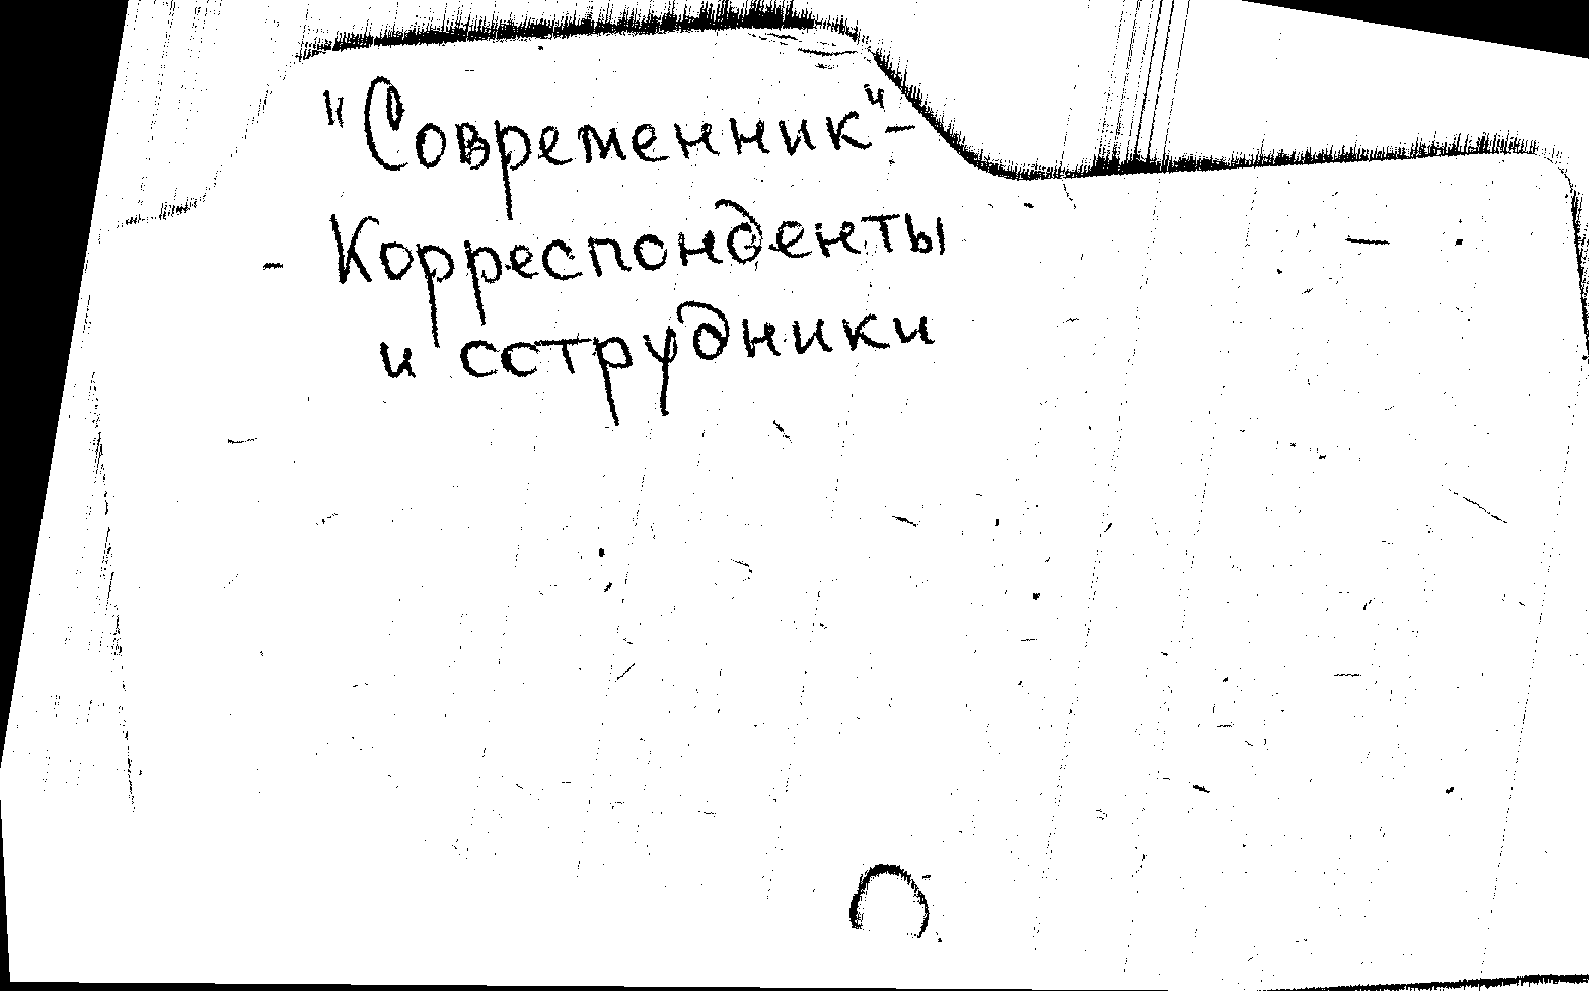 "Современник"-
- Корреспонденты
и сструдники